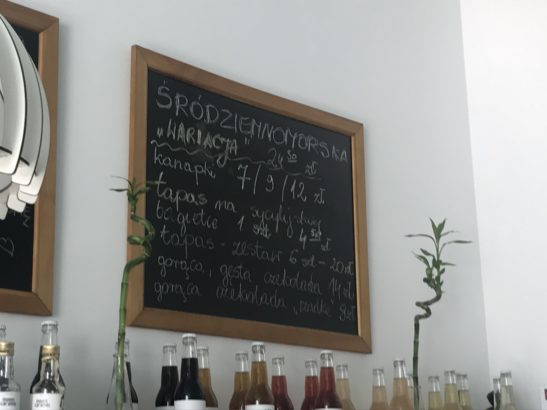 ŚRÓDZIEMNOMORSKA
„WARIACJA" 24 50 zł
kanapki 7/9/12 zł
tapas na sycylijskiej
bagietce 1 szt 4 50 zł
tapas - zestaw 6 szt - 20 zł
gorąca, gęsta czekolada 14 zł
gorąca czekolada, rzadka 9 zł